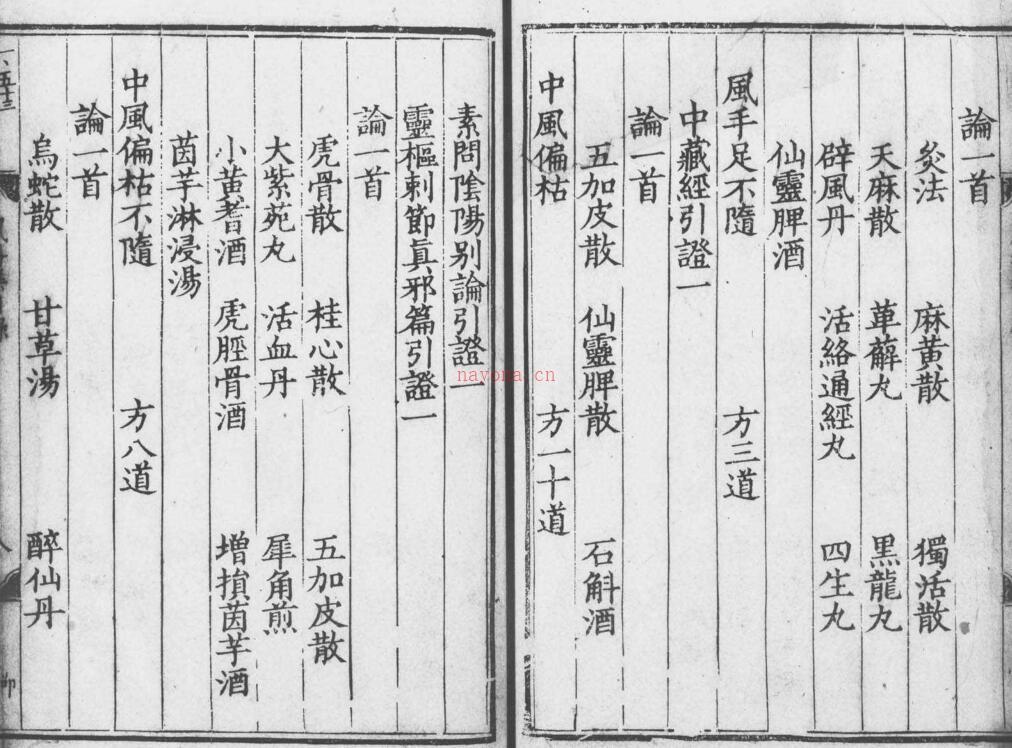 論一首
灸法　麻黃散　獨活散
天麻散　萆薢丸　黑龍丸
辟風丹　活絡通經丸　四生丸
仙靈脾酒
風手足不隨　方三道
中藏經引證一
論一首
五加皮散　仙靈脾散　石斛酒
中風偏枯　方一十道
素問陰陽别論引證一
靈樞刺節眞邪篇引證一
論一首
虎骨散　桂心散　五加皮散
大紫苑丸　活血丹　犀角煎
小黃耆酒　虎脛骨酒　增損茵芋酒
茵芋淋浸湯
中風偏枯不隨　方八道
論一首
烏蛇散　甘草湯　醉仙丹
nayona.cn